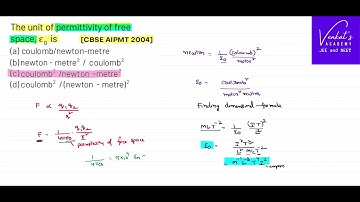 The unit of permittivity of free
space, ε₀ is [CBSE AIPMT 2004]
(a) coulomb/newton-metre
(b) newton - metre² / coulomb²
(c) coulomb² /newton -metre²
(d) coulomb² /(newton - metre)²
F ∝ q₁q₂/r²
F = 1/4πε₀ q₁q₂/r²
permittivity of free space
1/4πε₀ = 9×10⁹
Newton = 1/ε₀ (coulomb)²/metre²
ε₀ = coulomb²/metre² newton
Finding dimensional formula
MLT⁻² = 1/ε₀ (IT)²/L²
ε₀ = I²T²/L² MLT⁻²
= M⁻¹L⁻³T⁴I²
Venkat's
ACADEMY
JEE and NEET